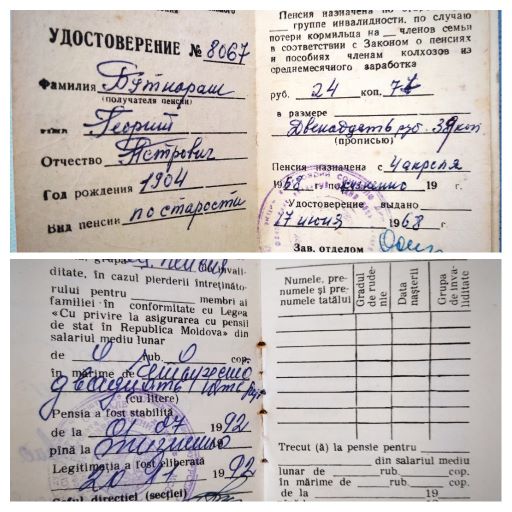 УДОСТОВЕРЕНИЕ № 8067
Фамилия Бутнараш
(получателя пенсии)
Георгий
Отчество Петрович
Год рождения 1904
Вид пенсии по старости
Пенсия назначена по
группе инвалидности, по случаю
потери кормильца на членов семьи
в соответствии с Законом о пенсиях
и пособиях членам колхозов из
среднемесячного заработка
руб. 24 коп. 71
в размере
Двенадцать руб. 39 коп
(прописью)
Пенсия назначена с 4 апреля
1968 г. по жизненно 19 г.
Удостоверение выдано
17 июня 1968 г.
Зав. отделом
ditate, în cazul pierderii întreținăto-
rului pentru membri ai
familiei în conformitate cu Legea
«Cu privire la asigurarea cu pensii
de stat în Republica Moldova» din
salariul mediu lunar
de 0 rub. 0 cop.
în mărime de
двадцать пять руб
(cu litere)
Pensia a fost stabilită
de la 01 07 1992
pînă la пожизненно
Legitimația a fost eliberată
1992
Șeful direcției (secției)
Numele, pre-
numele și pre-
numele tatălui
Gradul
de rude-
nie
Data
nașterii
Grupa
de inva-
liditate
Trecut (ă) la pensie pentru
din salariul mediu
lunar de rub. cop.
în mărime de rub. cop.
de la 19